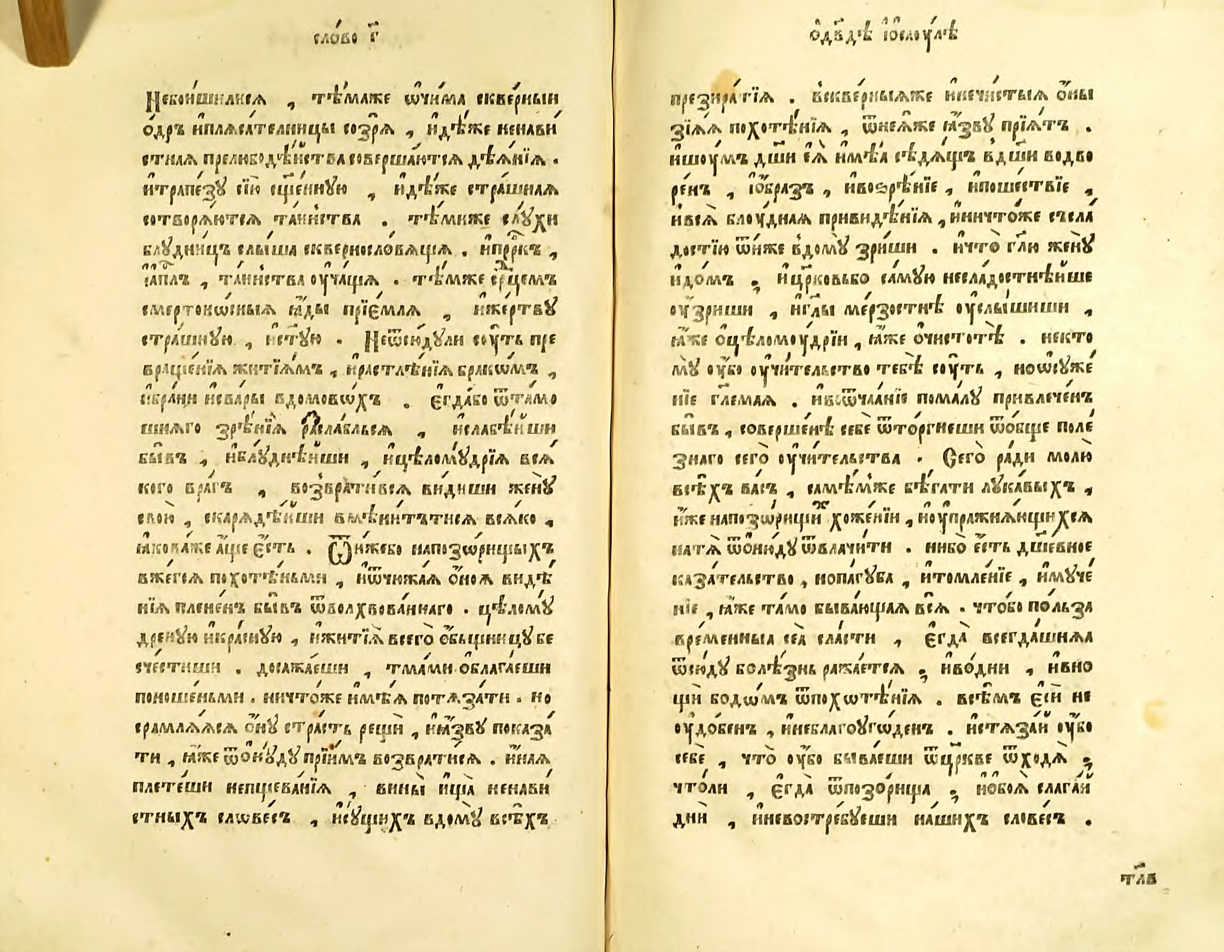 сло́во г҃
Небои́шилися , тѣ́маже ѡ҆чи́ма скве́рныи
ѻ҆́дръ и҆плѧса́телницы созрѧ̀ , и҆дѣ́же ненави
стнаѧ прелюбодѣ́йства соверша́ютсѧ дѣѧ́нїѧ .
и҆трапе́зꙋ сїю̀ сщ҃е́ннꙋю , и҆дѣ́же стра́шнаѧ
сотворѧ́ютсѧ та́инства . тѣ́миже слꙋ́хи
блꙋдни́цъ слы́ша сквернословѧ́щаѧ . и҆прⷪ҇ркъ ,
и҆а҆пⷭ҇лъ , та́инства оу҆ча́щаѧ . тѣ́мже срⷣцемъ
смертоно́сныѧ ꙗ҆́ды прїе́млѧ , и҆же́ртвꙋ
стра́шнꙋю , и҆ст҃ꙋ́ю . Неѿсю́дꙋли сꙋ́ть пре
враще́нїѧ житїѧ́мъ , и҆растлѣ́нїѧ бра́кѡмъ ,
и҆бра́ни и҆сва́ры вдомовѡ́хъ . є҆гда́бо ѿта́мо
шнѧго зрѣ́нїѧ разсла́бльсѧ , и҆слабѣ́йши
бы́въ , и҆блꙋднѣ́йши , и҆цѣломꙋ́дрїѧ всѧ́
кого вра́гъ , возврати́всѧ ви́диши женꙋ̀
свою̀ , скарѧ́днѣйши вмѣни́тътисѧ всѧ́ко ,
ꙗ҆кова́же а҆́ще є҆́сть . Ѿни́жебо напозѡ́рищыхъ
вже́гсѧ похотѣ́ньми , и҆ѿчюжа́ѧ ѻ҆́ноѧ видѣ́
нїѧ плене́нъ бы́въ ѿволхвова́ннаго . цѣломꙋ́
дреннꙋю и҆кра́снꙋю , и҆житїѧ̀ всего̀ ѻ҆́бьщницꙋ бе
счести́ши . досажа́еши , тма́ми ѻ҆блага́еши
поноше́ньми . ничто́же и҆мѣ́ѧ потѧза́ти . но
срамлѧ́ѧсѧ ѻ҆́нꙋ стра́сть рещѝ , и҆ꙗ҆́звꙋ показа́
ти , ꙗ҆́же ѿѻ҆нꙋ́дꙋ прїи́мъ возврати́сѧ . и҆на́ѧ
плете́ши непщева́нїѧ , вины̀ и҆щѧ̀ ненави́
стныхъ слове́съ , и҆сꙋ́щихъ вдомꙋ̀ всѣ́хъ
ѻ҆дв҃дѣ и҆ѡ҆саоу́лѣ
презира́тїѧ . ѡ҆скве́рныѧже и҆нечи́стыѧ ѻ҆́ны
зїѧ́ѧ похотѣ́нїѧ , ѿнеѧ́же ꙗ҆́звꙋ прїѧ́тъ .
и҆шоу́мъ дш҃и є҆ѧ̀ и҆мѣ́ѧ сѣдѧ́щъ вдш҃и водво
ре́нъ , і҆ѻ҆́бразъ , и҆воззрѣ́нїе , и҆поше́ствїе ,
и҆всѧ̀ блоу́днаѧ привидѣ́нїѧ , и҆ничто́же съсла́
достїю ѿи́же вдомꙋ̀ зри́ши . и҆что̀ гл҃ю женꙋ̀
и҆до́мъ . и҆цр҃ковьбо самꙋ́ю несладостнѣ́йше
оу҆́зриши , и҆гл҃ы ме́рзостнѣ оу҆слы́шиши ,
ꙗ҆́же ѻ҆цѣломоу́дрїи , ꙗ҆́же ѻ҆чистотѣ̀ . некто
мꙋ̀ оу҆́бо оу҆чи́тельство тебѣ̀ соу́ть , ноѡ҆сꙋже́
нїе гл҃емаѧ . и҆воѿча́ѧнїе пома́лꙋ привлече́нъ
бы́въ , соверше́нѣ себѐ ѿто́ргнеши ѿѻ҆́бще поле́
знаго сего̀ оу҆чи́тельства . Сего̀ ра́ди молю̀
всѣ́хъ ва́съ , самѣ́мже бѣ́гати лꙋка́выхъ ,
и҆́же напозѡ́рищи хоже́нїи , и҆оу҆пражнѧ́ющихсѧ
натѧ̀ ѿѻ҆ню́дꙋ ѿвлачи́ти . нибо̀ є҆́сть дш҃е́вное
каза́тельство , нопа́гꙋба , и҆томле́нїе , и҆мꙋче́
нїе , ꙗ҆́же та́мо быва́ющаѧ всѧ̀ . что́бо по́льза
вре́менныѧ сеѧ̀ сла́сти , є҆гда̀ всегда́шнѧѧ
ѿсю́дꙋ болѣ́знь ража́етсѧ ; и҆во́дни , и҆вно
щи бодо́мъ ѿпохѡтѣ́нїѧ . всѣ́мъ є҆сѝ не
оу҆до́бенъ , и҆неблагоуго́денъ . и҆стѧза́й оу҆́бо
себѐ , что̀ оу҆́бо быва́еши ѿцр҃кве ѿходѧ̀ ;
что́ли , є҆гда̀ ѿпозо́рища ; и҆ѻ҆боѧ̀ слага́й
дни̑ , и҆невостре́бꙋеши на́шихъ слове́съ .
тл҃в